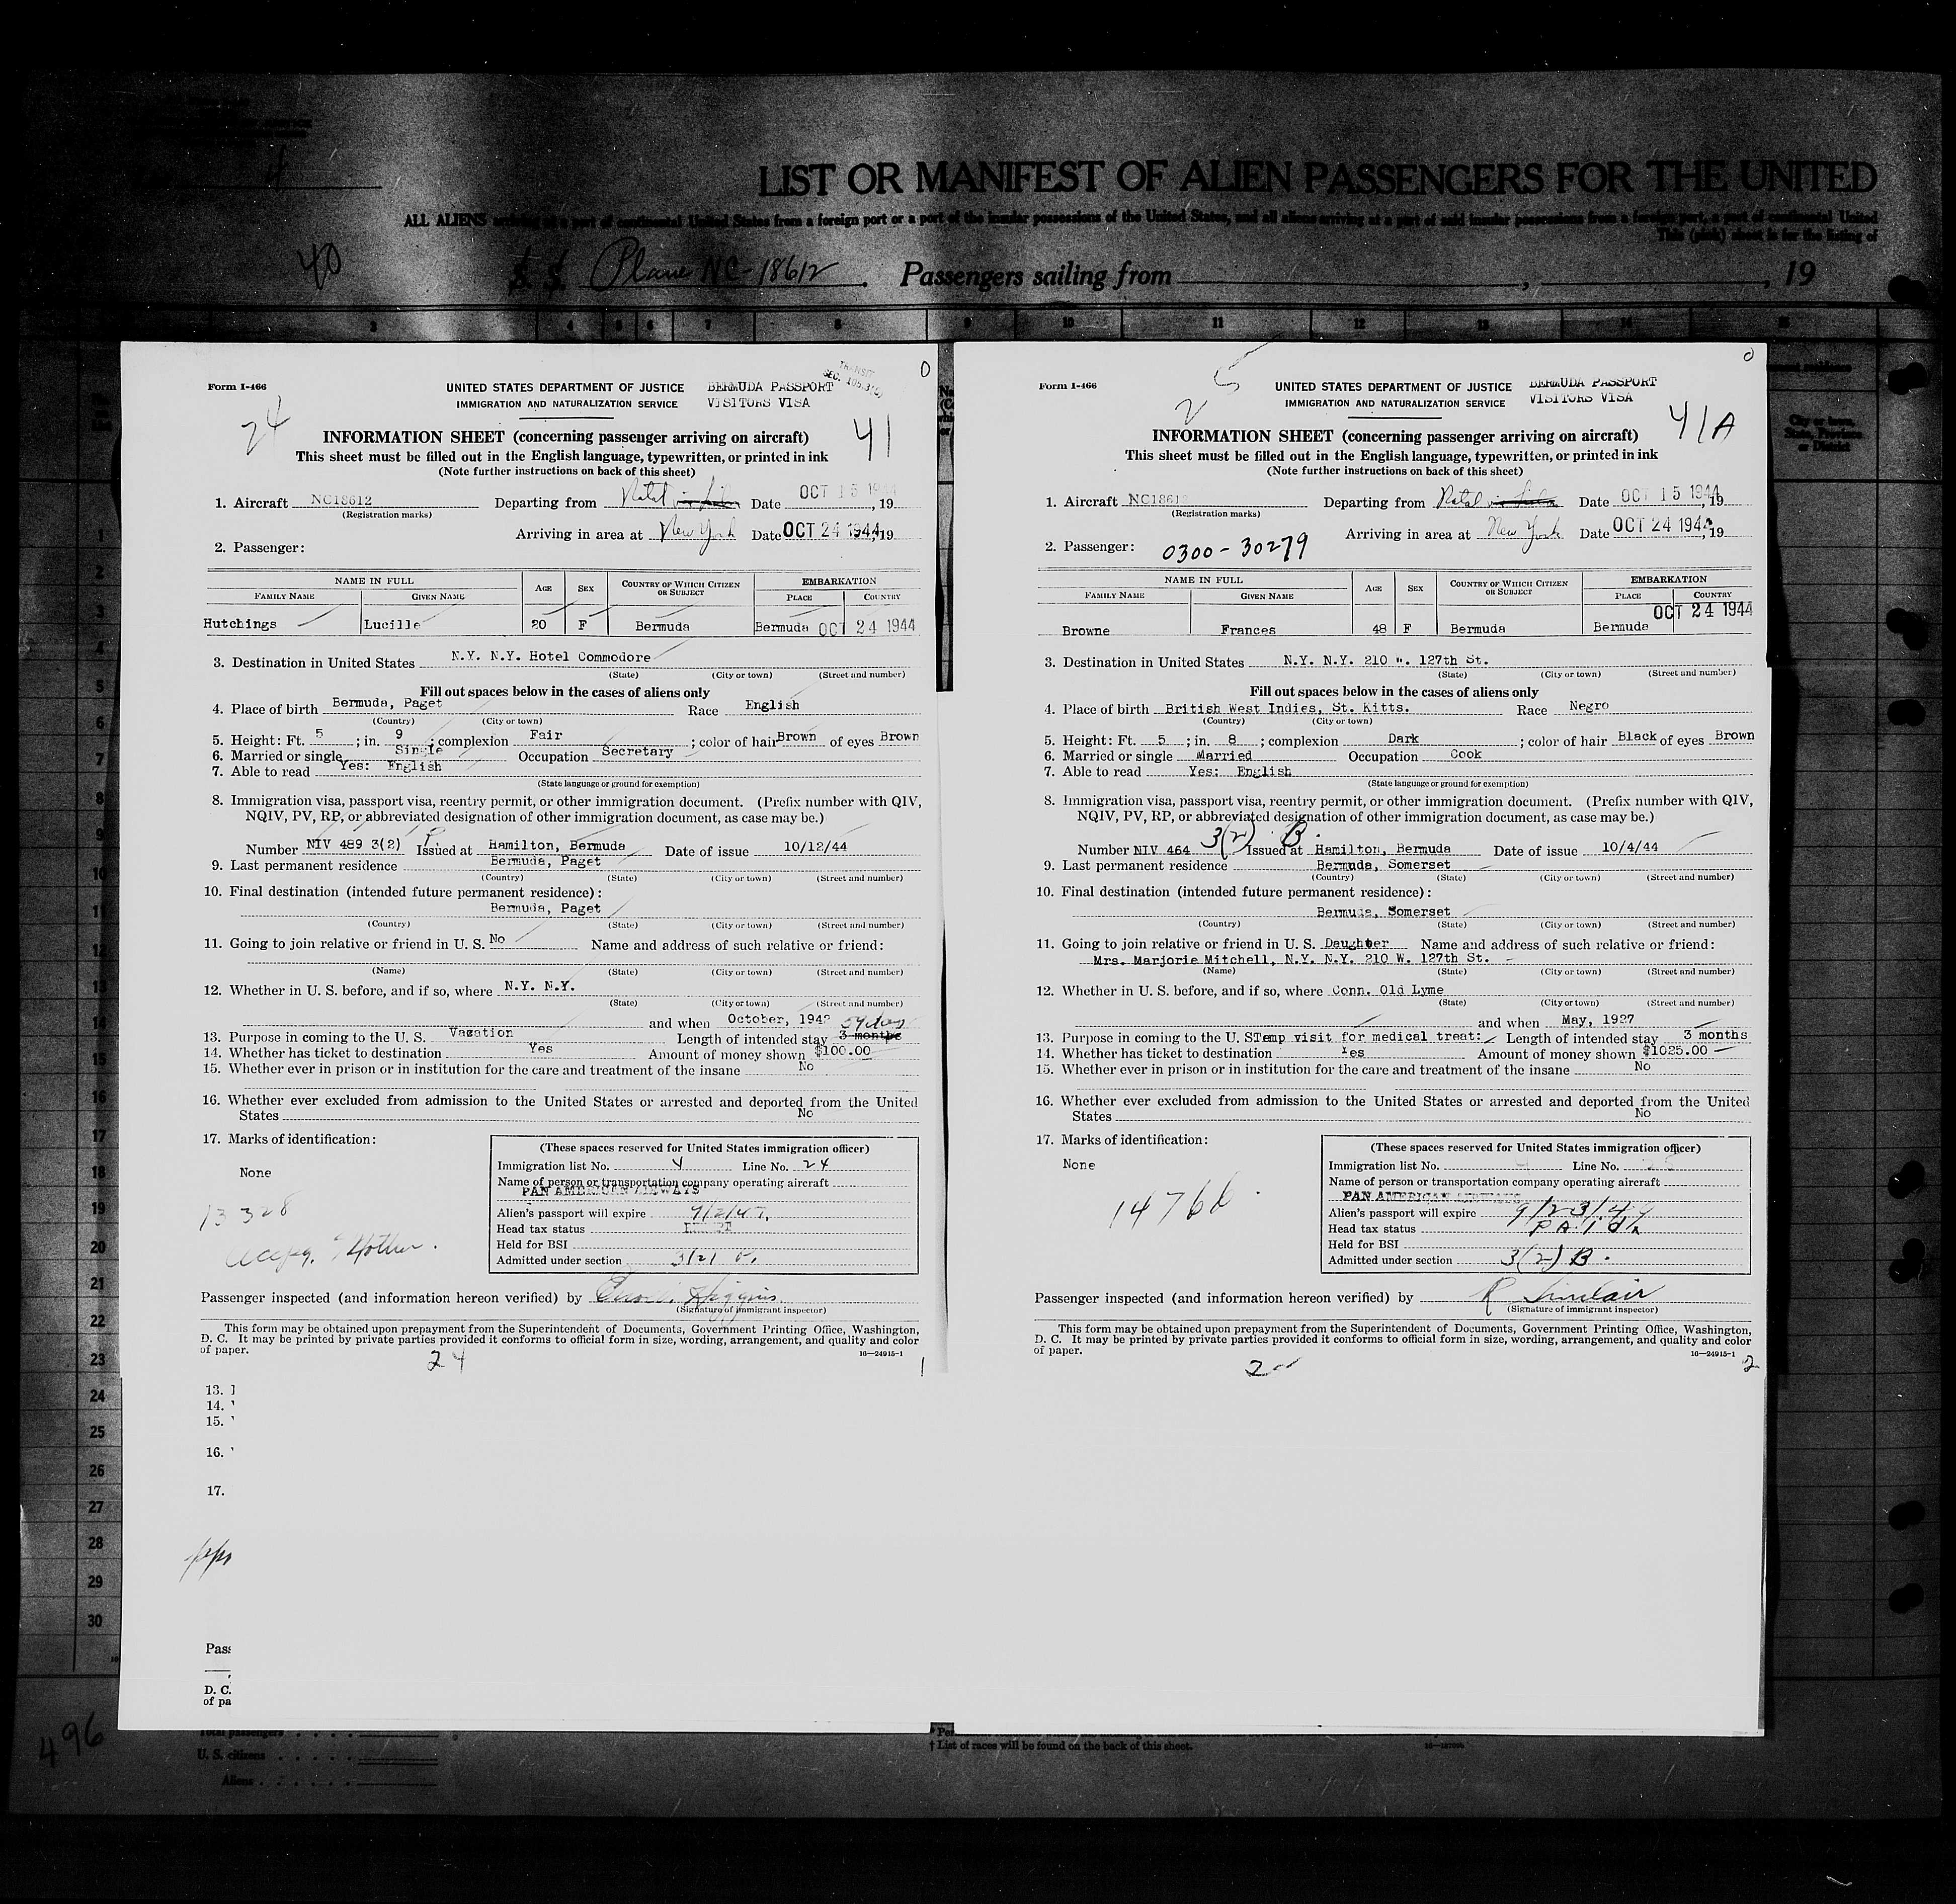 4
LIST OR MANIFEST OF ALIEN PASSENGERS FOR THE UNITED
ALL ALIENS arriving at a port of continental United States from a foreign port or a port of the insular possessions of the United States, and all aliens arriving at a port of said insular possessions from a foreign port, a port of continental United
This (pink) sheet is for the listing of
40
S. S. Plane NC-18612. Passengers sailing from , , 19
3 4 5 6 7 8 9 10 11 12 13 14 15
Form I-466
UNITED STATES DEPARTMENT OF JUSTICE
IMMIGRATION AND NATURALIZATION SERVICE
BERMUDA PASSPORT
VISITORS VISA
TRANSIT
0
24
41
INFORMATION SHEET (concerning passenger arriving on aircraft)
This sheet must be filled out in the English language, typewritten, or printed in ink
(Note further instructions on back of this sheet)
1. Aircraft NC18612 Departing from Natal Date OCT 15 1944, 19
(Registration marks)
Arriving in area at New York Date OCT 24 1944, 19
2. Passenger:
NAME IN FULL AGE SEX COUNTRY OF WHICH CITIZEN OR SUBJECT EMBARKATION
FAMILY NAME GIVEN NAME PLACE COUNTRY
Hutchings Lucille 20 F Bermuda Bermuda OCT 24 1944
3. Destination in United States N.Y. N.Y. Hotel Commodore
(State) (City or town) (Street and number)
Fill out spaces below in the cases of aliens only
4. Place of birth Bermuda, Paget Race English
(Country) (City or town)
5. Height: Ft. 5 ; in. 9 ; complexion Fair ; color of hair Brown of eyes Brown
6. Married or single Single Occupation Secretary
7. Able to read Yes: English
(State language or ground for exemption)
8. Immigration visa, passport visa, reentry permit, or other immigration document. (Prefix number with QIV,
NQIV, PV, RP, or abbreviated designation of other immigration document, as case may be.)
Number NIV 489 3(2) Issued at Hamilton, Bermuda Date of issue 10/12/44
9. Last permanent residence Bermuda, Paget
(Country) (State) (City or town) (Street and number)
10. Final destination (intended future permanent residence):
Bermuda, Paget
(Country) (State) (City or town) (Street and number)
11. Going to join relative or friend in U. S. No Name and address of such relative or friend:
(Name) (State) (City or town) (Street and number)
12. Whether in U. S. before, and if so, where N.Y. N.Y.
(State) (City or town) (Street and number)
and when October, 1942
13. Purpose in coming to the U. S. Vacation Length of intended stay 3 months
14. Whether has ticket to destination Yes Amount of money shown $100.00
15. Whether ever in prison or in institution for the care and treatment of the insane No
16. Whether ever excluded from admission to the United States or arrested and deported from the United
States No
17. Marks of identification:
None
13328
Accpg. Mother.
(These spaces reserved for United States immigration officer)
Immigration list No. 4 Line No. 24
Name of person or transportation company operating aircraft
PAN AMERICAN AIRWAYS
Alien's passport will expire
Head tax status
Held for BSI
Admitted under section 3(2)
Passenger inspected (and information hereon verified) by Higgins
(Signature of immigrant inspector)
This form may be obtained upon prepayment from the Superintendent of Documents, Government Printing Office, Washington,
D. C. It may be printed by private parties provided it conforms to official form in size, wording, arrangement, and quality and color
of paper.
16—24915-1
24
1
Form I-466
UNITED STATES DEPARTMENT OF JUSTICE
IMMIGRATION AND NATURALIZATION SERVICE
BERMUDA PASSPORT
VISITORS VISA
0
25
41A
INFORMATION SHEET (concerning passenger arriving on aircraft)
This sheet must be filled out in the English language, typewritten, or printed in ink
(Note further instructions on back of this sheet)
1. Aircraft NC18612 Departing from Natal Date OCT 15 1944, 19
(Registration marks)
Arriving in area at New York Date OCT 24 1944, 19
2. Passenger: 0300-30279
NAME IN FULL AGE SEX COUNTRY OF WHICH CITIZEN OR SUBJECT EMBARKATION
FAMILY NAME GIVEN NAME PLACE COUNTRY
OCT 24 1944
Browne Frances 48 F Bermuda Bermuda
3. Destination in United States N.Y. N.Y. 210 W. 127th St.
(State) (City or town) (Street and number)
Fill out spaces below in the cases of aliens only
4. Place of birth British West Indies, St. Kitts. Race Negro
(Country) (City or town)
5. Height: Ft. 5 ; in. 8 ; complexion Dark ; color of hair Black of eyes Brown
6. Married or single Married Occupation Cook
7. Able to read Yes: English
(State language or ground for exemption)
8. Immigration visa, passport visa, reentry permit, or other immigration document. (Prefix number with QIV,
NQIV, PV, RP, or abbreviated designation of other immigration document, as case may be.)
Number NIV 464 3(2) B. Issued at Hamilton, Bermuda Date of issue 10/4/44
9. Last permanent residence Bermuda, Somerset
(Country) (State) (City or town) (Street and number)
10. Final destination (intended future permanent residence):
Bermuda, Somerset
(Country) (State) (City or town) (Street and number)
11. Going to join relative or friend in U. S. Daughter Name and address of such relative or friend:
Mrs. Marjorie Mitchell, N.Y. N.Y. 210 W. 127th St.
(Name) (State) (City or town) (Street and number)
12. Whether in U. S. before, and if so, where Conn. Old Lyme
(State) (City or town) (Street and number)
and when May, 1927
13. Purpose in coming to the U. S Temp visit for medical treat: Length of intended stay 3 months
14. Whether has ticket to destination Yes Amount of money shown $1025.00
15. Whether ever in prison or in institution for the care and treatment of the insane No
16. Whether ever excluded from admission to the United States or arrested and deported from the United
States No
17. Marks of identification:
None
14766
(These spaces reserved for United States immigration officer)
Immigration list No. 4 Line No. 25
Name of person or transportation company operating aircraft
PAN AMERICAN AIRWAYS
Alien's passport will expire
Head tax status PAID
Held for BSI
Admitted under section 3(2) B.
Passenger inspected (and information hereon verified) by R Sinclair
(Signature of immigrant inspector)
This form may be obtained upon prepayment from the Superintendent of Documents, Government Printing Office, Washington,
D. C. It may be printed by private parties provided it conforms to official form in size, wording, arrangement, and quality and color
of paper.
16—24915-1
2
13.
14.
15.
16.
17.
Pas
D. C.
of pa
1
2
3
4
5
6
7
8
9
10
11
12
13
14
15
16
17
18
19
20
21
22
23
24
25
26
27
28
29
30
496
Total passengers
U. S. citizens
Aliens
† List of races will be found on the back of this sheet.